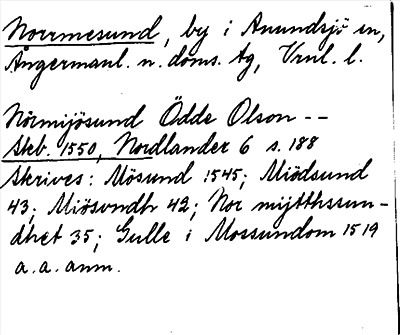 Norrmesund, by i Anundsjö sn,
Ångermanl. n. doms. tg, Vrnl. l.
Nörmijösund Ödde Olson --
Skb. 1550, Nordlander 6 s. 188
Skrives: Mösund 1545; Miödsund
43; Miösvndh 42; Nor mijtthssun-
dhet 35; Gulle i Mossundom 1519
a.a. anm.